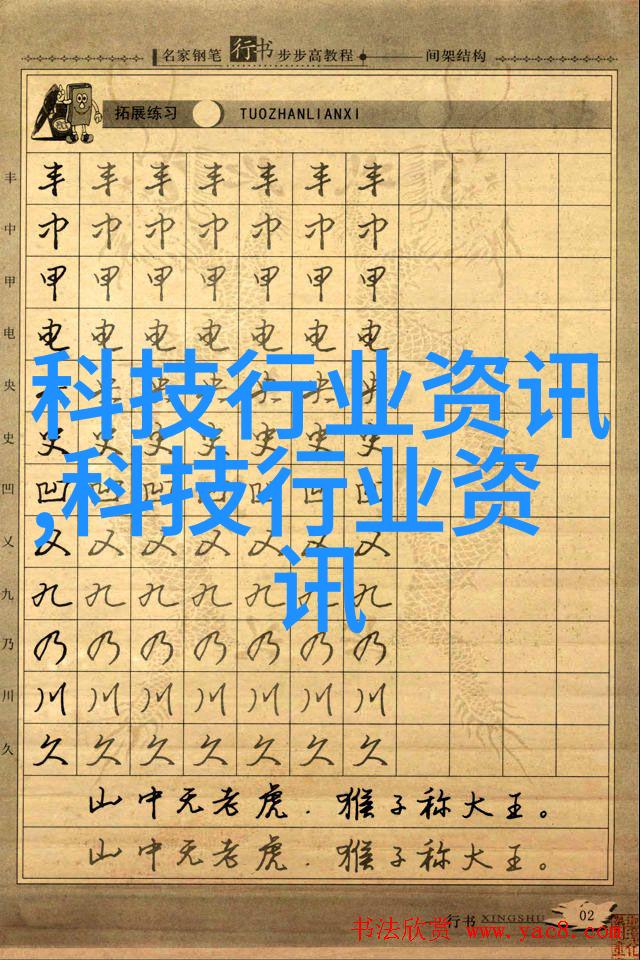 名家钢笔行书步步高教程 间架结构
拓展练习 TUOZHANLIANXI
丰 丰 丰 丰 丰 丰 丰 丰
中 中 中 中 中 中 中 中
甲 甲 甲 甲 甲 甲 甲 甲
电 电 电 电 电 电 电 电
央 央 央 央 央 央 央
科技行业资讯
史 史 史 史 史 史 史 史
,科技行业资
凹 凹 凹 凹 凹 凹 凹 凹
乂 乂 乂 乂 乂 乂 乂
讯
九 九 九 九 九 九 九
乃 乃 乃 乃 乃 乃 乃 乃
川 川 川 川 川 川 川 川
久 久 久 久 久 久 久 久
山中无老虎.猴子称大王。
山中无老虎.猴子称大王。
行书 XINGSHU 02
书法欣赏 www.yac8.com